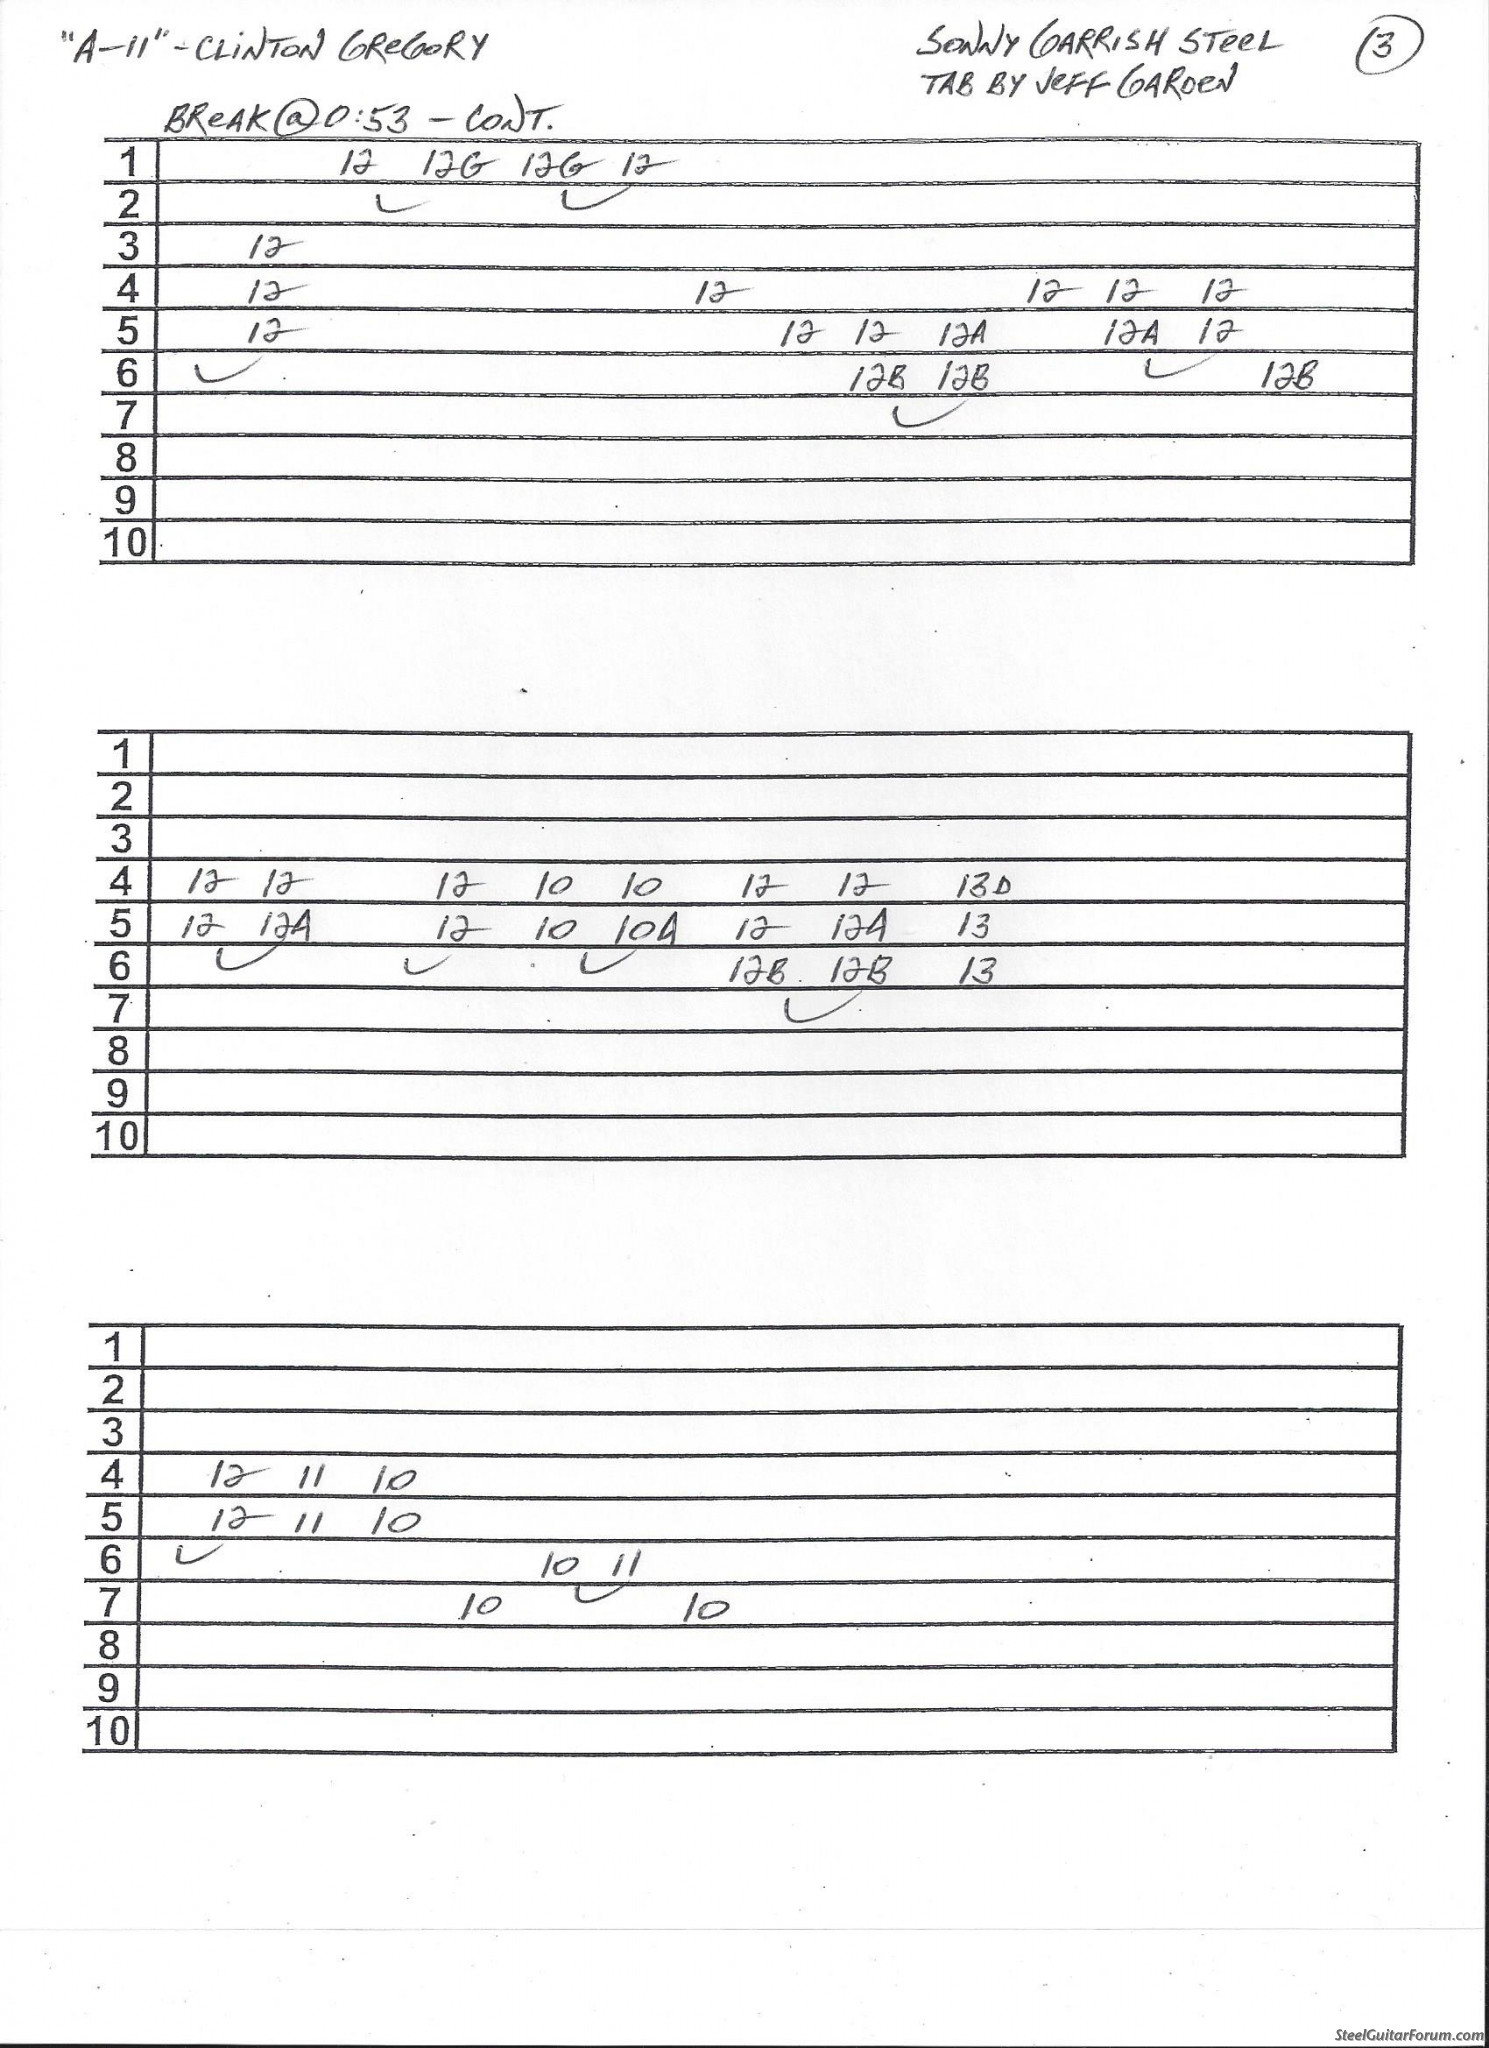 "A-11" - CLINTON GREGORY
SONNY GARRISH STEEL
TAB BY JEFF GARDEN
3
BREAK @ 0:53 - CONT.
1 12 12G 12G 12
2
3 12
4 12 12 12 12 12
5 12 12 12 12A 12A 12
6 12B 12B 12B
7
8
9
10
1
2
3
4 12 12 12 10 10 12 12 13D
5 12 12A 12 10 10A 12 12A 13
6 12B 12B 13
7
8
9
10
1
2
3
4 12 11 10
5 12 11 10
6 10 11
7 10 10
8
9
10
SteelGuitarForum.com